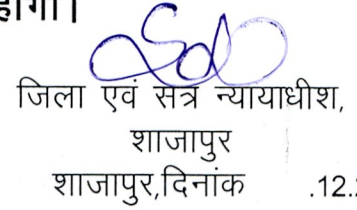 होगा।
जिला एवं सत्र न्यायाधीश,
शाजापुर
शाजापुर,दिनांक .12.